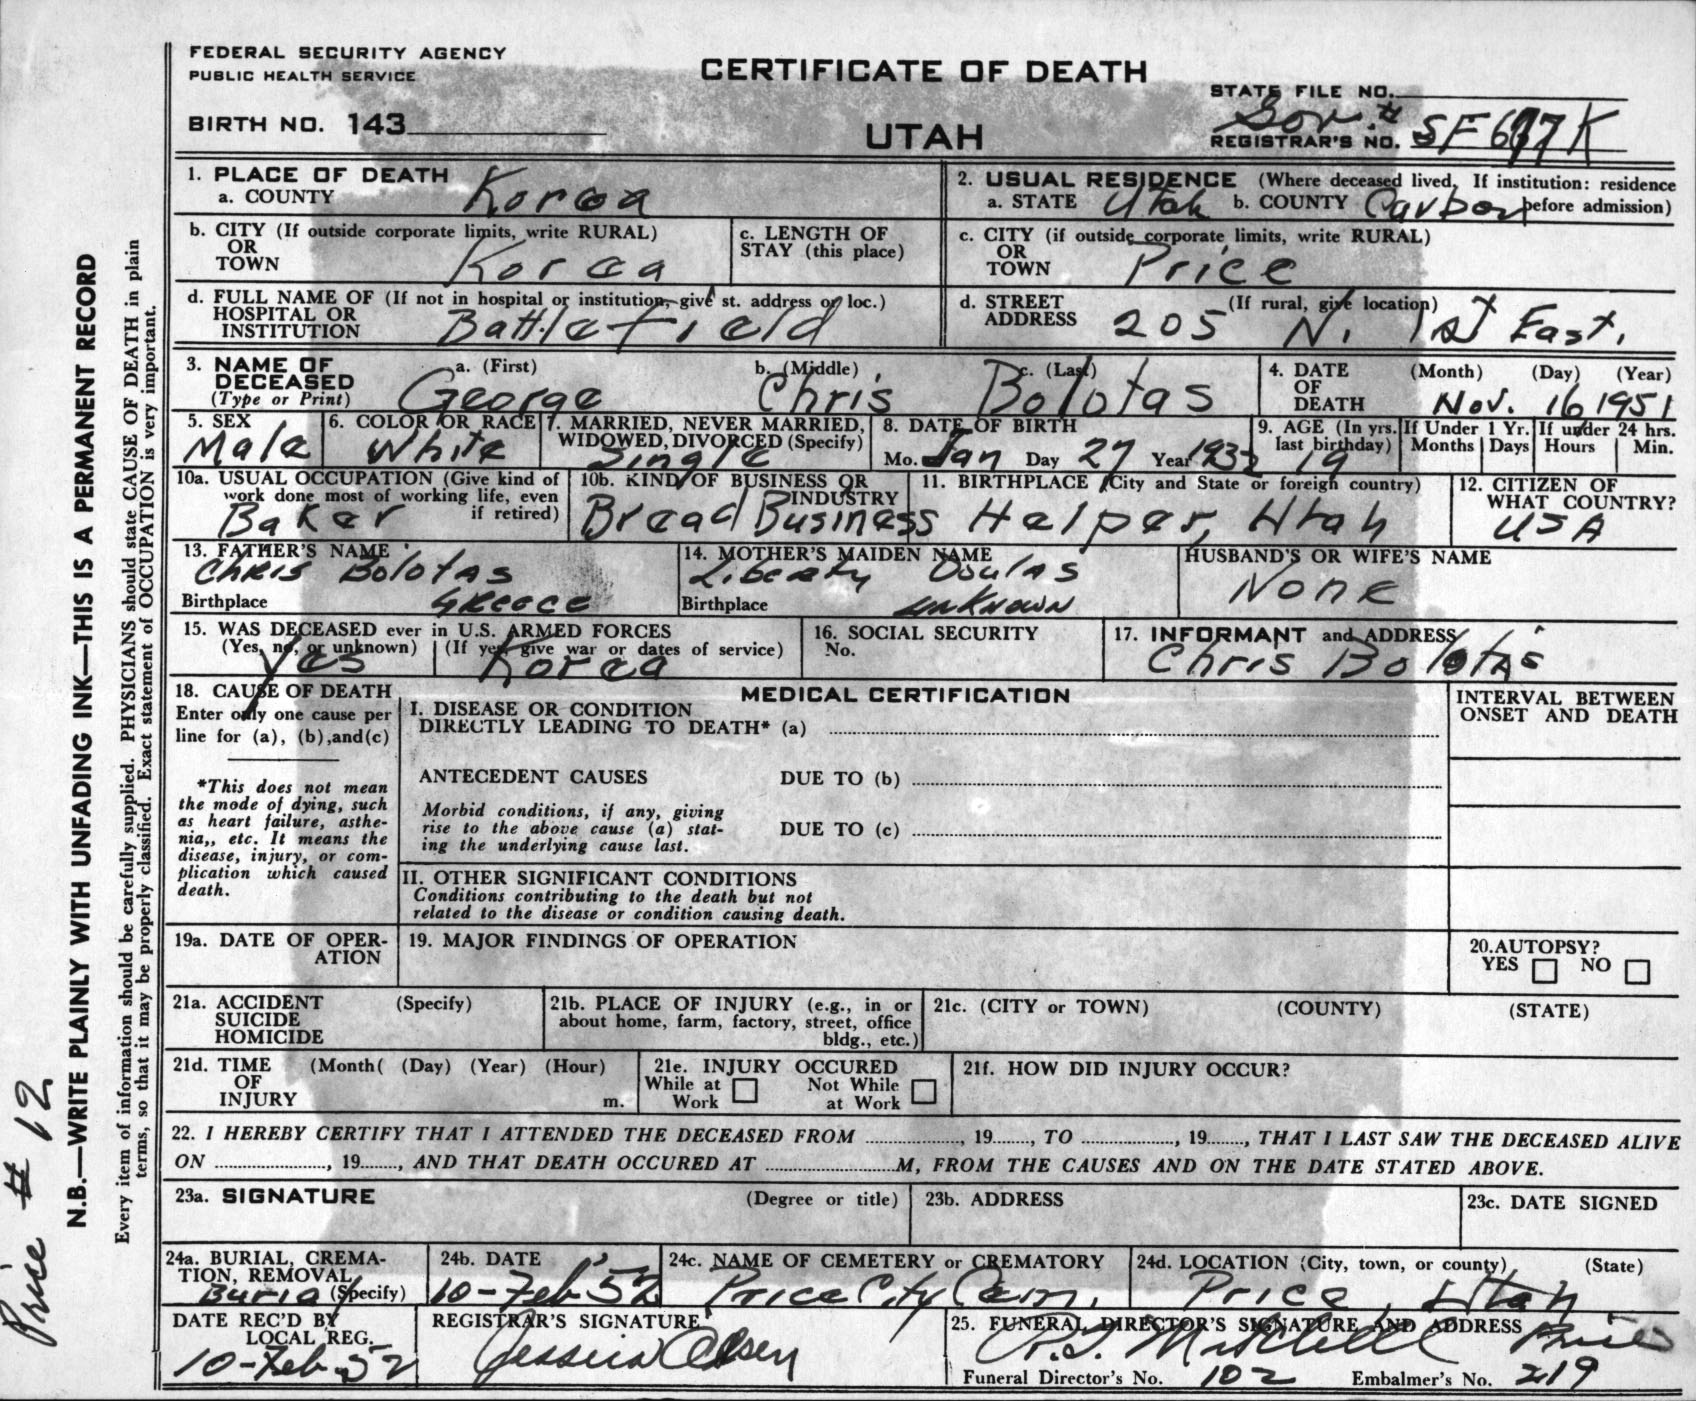 FEDERAL SECURITY AGENCY
PUBLIC HEALTH SERVICE
CERTIFICATE OF DEATH
STATE FILE NO.
BIRTH NO. 143
UTAH
Gov. #
REGISTRAR'S NO. SF617K
1. PLACE OF DEATH
a. COUNTY Korea
2. USUAL RESIDENCE (Where deceased lived. If institution: residence before admission)
a. STATE Utah b. COUNTY Carbon
b. CITY (If outside corporate limits, write RURAL)
OR
TOWN Korea
c. LENGTH OF
STAY (this place)
c. CITY (if outside corporate limits, write RURAL)
OR
TOWN Price
d. FULL NAME OF (If not in hospital or institution, give st. address or loc.)
HOSPITAL OR
INSTITUTION Battlefield
d. STREET (If rural, give location)
ADDRESS 205 N. 1st East.
3. NAME OF
DECEASED
(Type or Print)
a. (First) George
b. (Middle) Chris
c. (Last) Bolotas
4. DATE
OF
DEATH
(Month) (Day) (Year)
Nov. 16 1951
5. SEX
Male
6. COLOR OR RACE
White
7. MARRIED, NEVER MARRIED,
WIDOWED, DIVORCED (Specify)
Single
8. DATE OF BIRTH
Mo. Jan Day 27 Year 1932
9. AGE (In yrs.
last birthday)
19
If Under 1 Yr.
Months Days
If under 24 hrs.
Hours Min.
10a. USUAL OCCUPATION (Give kind of
work done most of working life, even
if retired)
Baker
10b. KIND OF BUSINESS OR
INDUSTRY
Bread Business
11. BIRTHPLACE (City and State or foreign country)
Helper, Utah
12. CITIZEN OF
WHAT COUNTRY?
USA
13. FATHER'S NAME
Chris Bolotas
Birthplace Greece
14. MOTHER'S MAIDEN NAME
Liberaty Doulas
Birthplace unknown
HUSBAND'S OR WIFE'S NAME
None
15. WAS DECEASED ever in U.S. ARMED FORCES
(Yes, no, or unknown) (If yes, give war or dates of service)
Yes Korea
16. SOCIAL SECURITY
No.
17. INFORMANT and ADDRESS
Chris Bolotas
18. CAUSE OF DEATH
Enter only one cause per
line for (a), (b), and (c)
*This does not mean
the mode of dying, such
as heart failure, asthe-
nia,, etc. It means the
disease, injury, or com-
plication which caused
death.
MEDICAL CERTIFICATION
I. DISEASE OR CONDITION
DIRECTLY LEADING TO DEATH* (a)
ANTECEDENT CAUSES DUE TO (b)
Morbid conditions, if any, giving
rise to the above cause (a) stat-
ing the underlying cause last.
DUE TO (c)
II. OTHER SIGNIFICANT CONDITIONS
Conditions contributing to the death but not
related to the disease or condition causing death.
INTERVAL BETWEEN
ONSET AND DEATH
19a. DATE OF OPER-
ATION
19. MAJOR FINDINGS OF OPERATION
20. AUTOPSY?
YES NO
21a. ACCIDENT (Specify)
SUICIDE
HOMICIDE
21b. PLACE OF INJURY (e.g., in or
about home, farm, factory, street, office
bldg., etc.)
21c. (CITY or TOWN) (COUNTY) (STATE)
21d. TIME (Month( (Day) (Year) (Hour)
OF
INJURY m.
21e. INJURY OCCURED
While at Work
Not While at Work
21f. HOW DID INJURY OCCUR?
22. I HEREBY CERTIFY THAT I ATTENDED THE DECEASED FROM ............, 19......, TO ............, 19......, THAT I LAST SAW THE DECEASED ALIVE
ON ............, 19......, AND THAT DEATH OCCURED AT ............M, FROM THE CAUSES AND ON THE DATE STATED ABOVE.
23a. SIGNATURE (Degree or title)
23b. ADDRESS
23c. DATE SIGNED
24a. BURIAL, CREMA-
TION, REMOVAL
(Specify)
Burial
24b. DATE
10-Feb 52
24c. NAME OF CEMETERY or CREMATORY
Price City Cem.
24d. LOCATION (City, town, or county) (State)
Price, Utah
DATE REC'D BY
LOCAL REG.
10-Feb-52
REGISTRAR'S SIGNATURE
Jessica Olsen
25. FUNERAL DIRECTOR'S SIGNATURE AND ADDRESS
Mitchell Price
Funeral Director's No. 102 Embalmer's No. 219
N.B.—WRITE PLAINLY WITH UNFADING INK—THIS IS A PERMANENT RECORD
Every item of information should be carefully supplied. PHYSICIANS should state CAUSE OF DEATH in plain
terms, so that it may be properly classified. Exact statement of OCCUPATION is very important.
Price # 12